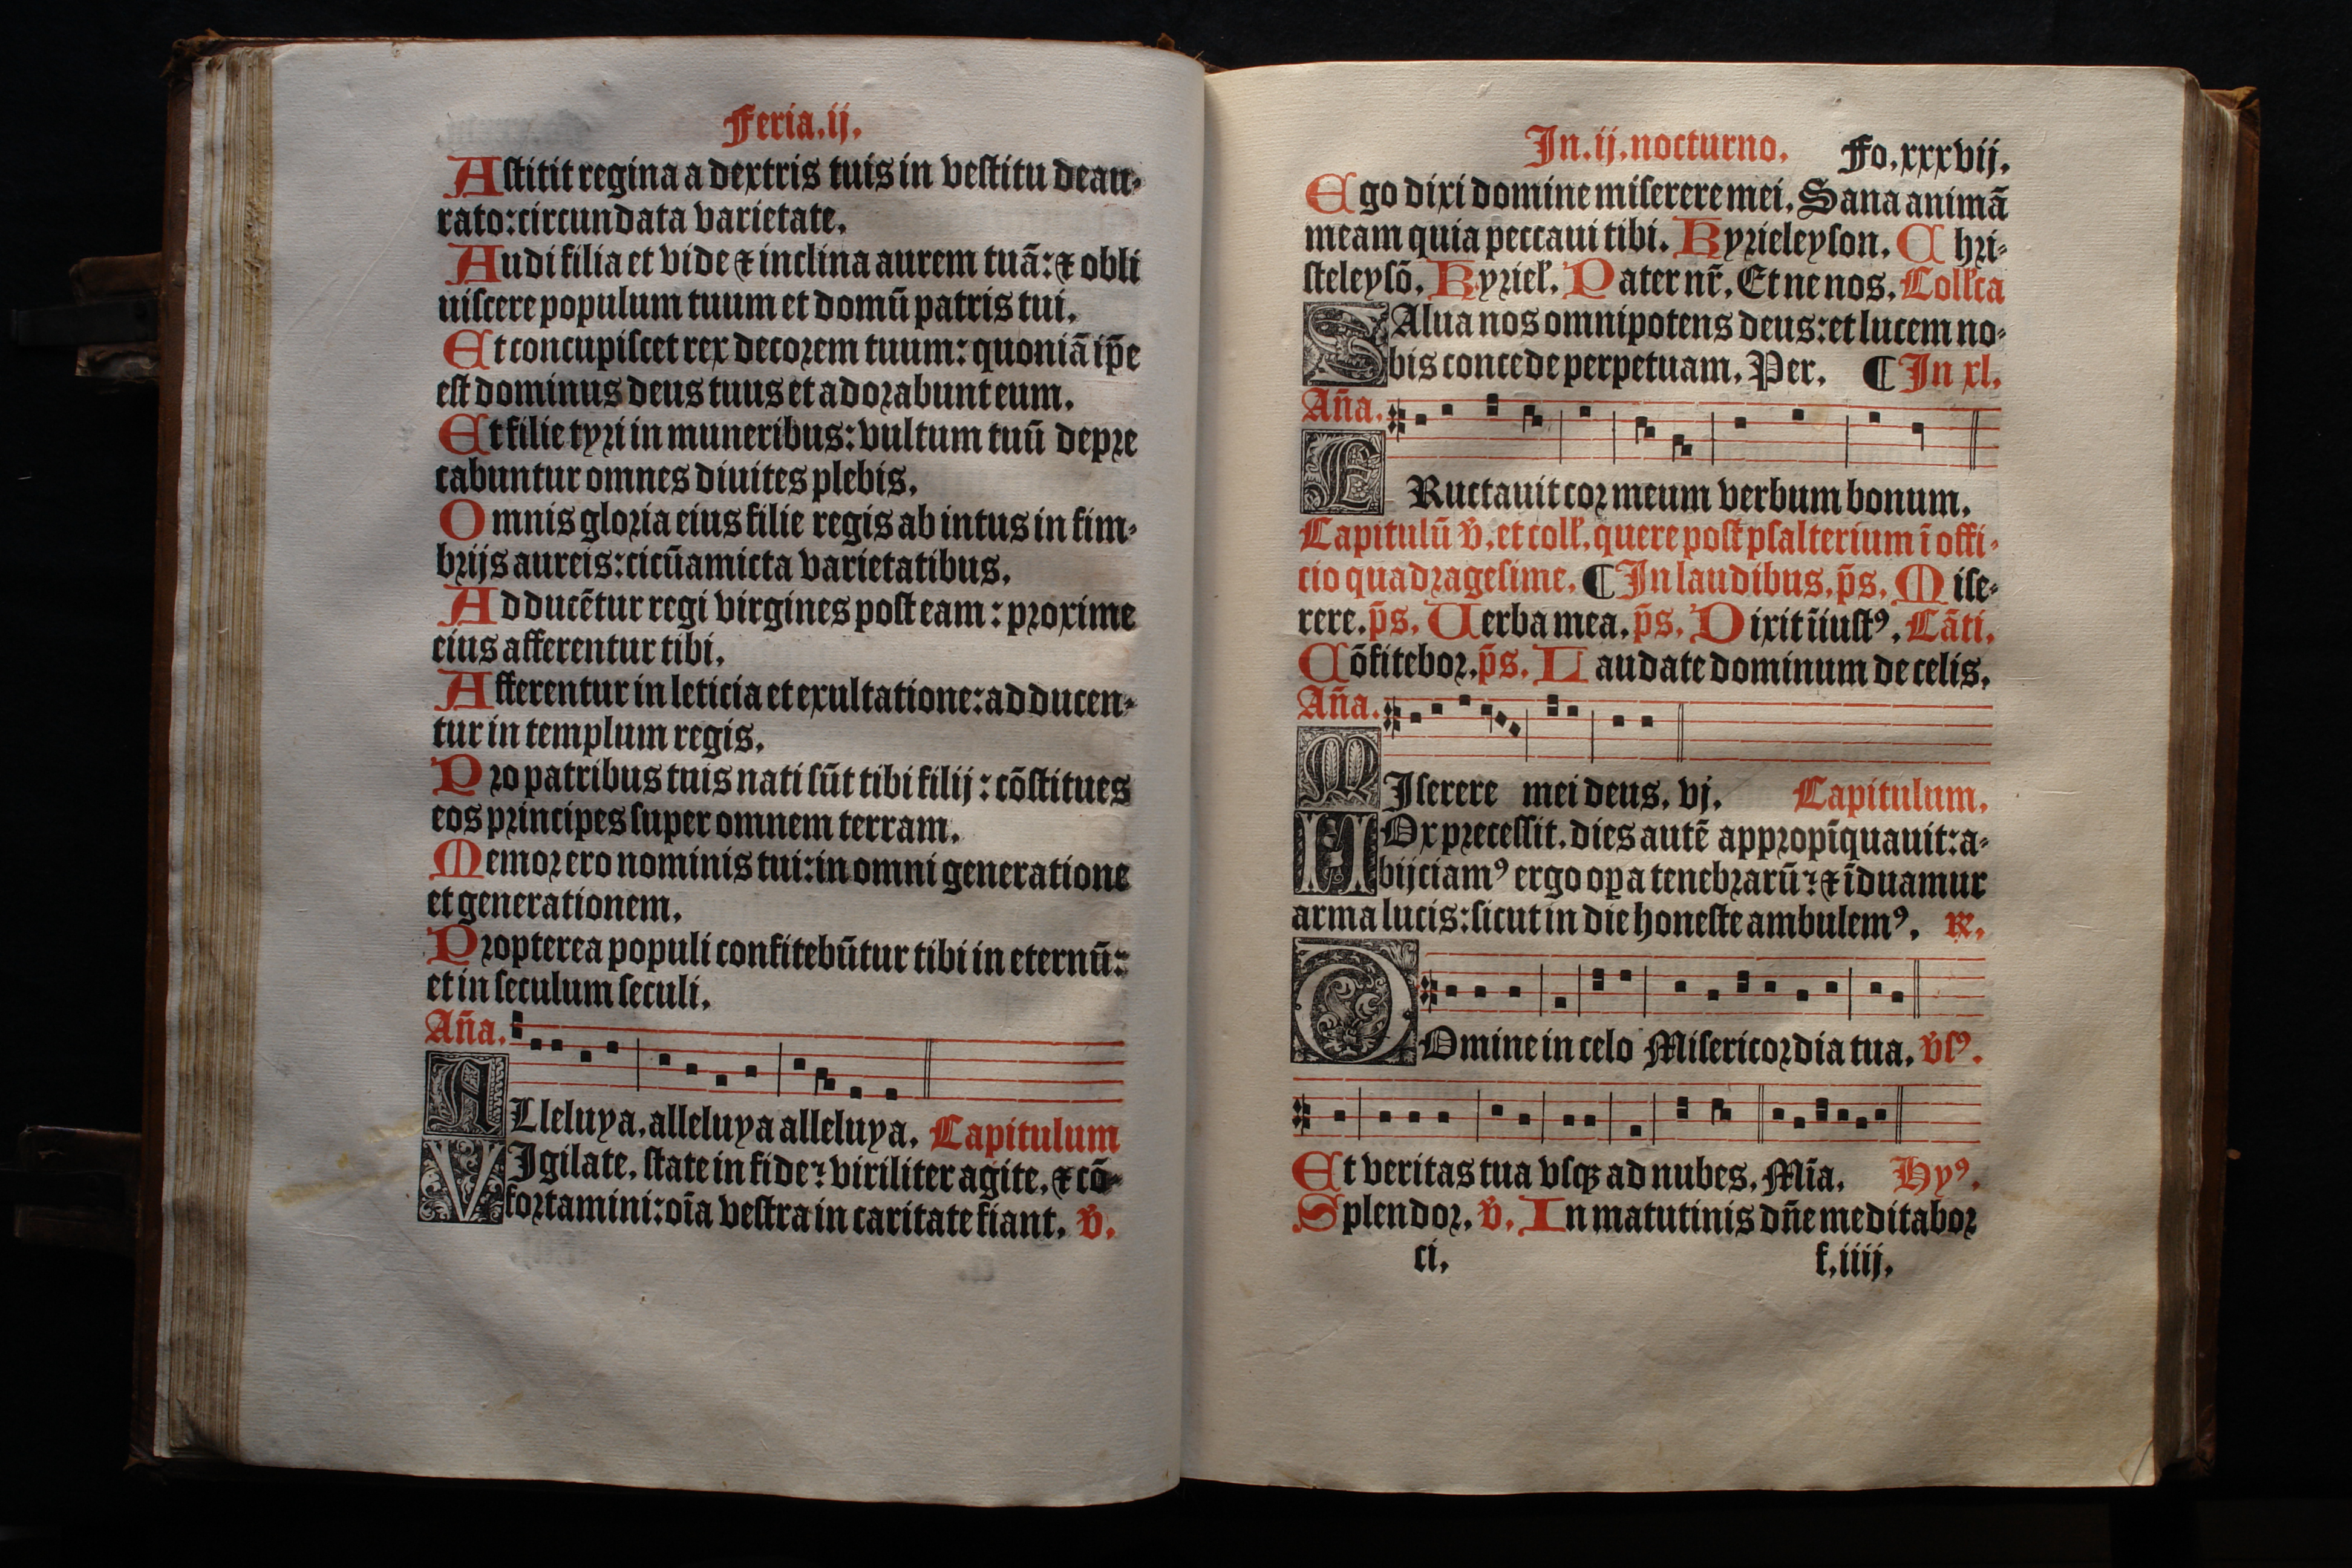 Feria.ij.
Astitit regina a dextris tuis in vestitu deau-
rato: circundata varietate.
Audi filia et vide ⁊ inclina aurem tuā: ⁊ obli
uiscere populum tuum et domū patris tui.
Et concupiscet rex decorem tuum: quoniā ip̄e
est dominus deus tuus et adorabunt eum.
Et filie tyri in muneribus: vultum tuū depre
cabuntur omnes diuites plebis.
Omnis gloria eius filie regis ab intus in fim-
brijs aureis: cicūamicta varietatibus.
Adducētur regi virgines post eam: proxime
eius afferentur tibi.
Afferentur in leticia et exultatione: adducen-
tur in templum regis.
Pro patribus tuis nati sūt tibi filij: cōstitues
eos principes super omnem terram.
Memor ero nominis tui: in omni generatione
et generationem.
Propterea populi confitebūtur tibi in eternū:
et in seculum seculi.
Añа.
ALleluya, alleluya alleluya. Capitulum
VIgilate, state in fide: viriliter agite, ⁊ cō-
fortamini: oīa vestra in caritate fiant. v̄.
In.ij.nocturno. Fo.xxxvij.
Ego dixi domine miserere mei. Sana animā
meam quia peccaui tibi. Kyrieleyson. Chri-
steleysō. Kyriel'. Pater nr̄. Et ne nos. Coll'ca
SAlua nos omnipotens deus: et lucem no-
bis concede perpetuam. Per. ¶ In xl.
Aña.
ERuctauit cor meum verbum bonum.
Capitulū v̄. et coll'. quere post psalterium ī offi-
cio quadragesime. ¶ In laudibus. p̄s. Mise-
rere. p̄s. Uerba mea. p̄s. Dixit īiustꝰ. Cāti.
Cōfitebor. p̄s. Laudate dominum de celis.
Aña.
MIserere mei deus. vj. Capitulum.
NOx precessit. dies autē appropīquauit: a-
bijciamꝰ ergo oꝑa tenebrarū: ⁊ īduamur
arma lucis: sicut in die honeste ambulemꝰ. ℟.
DOmine in celo Misericordia tua. v̄sꝰ.
Et veritas tua vsqꝫ ad nubes. Mīa. Hyꝰ.
Splendor. v̄. In matutinis dn̄e meditabor
ci. f.iiij.